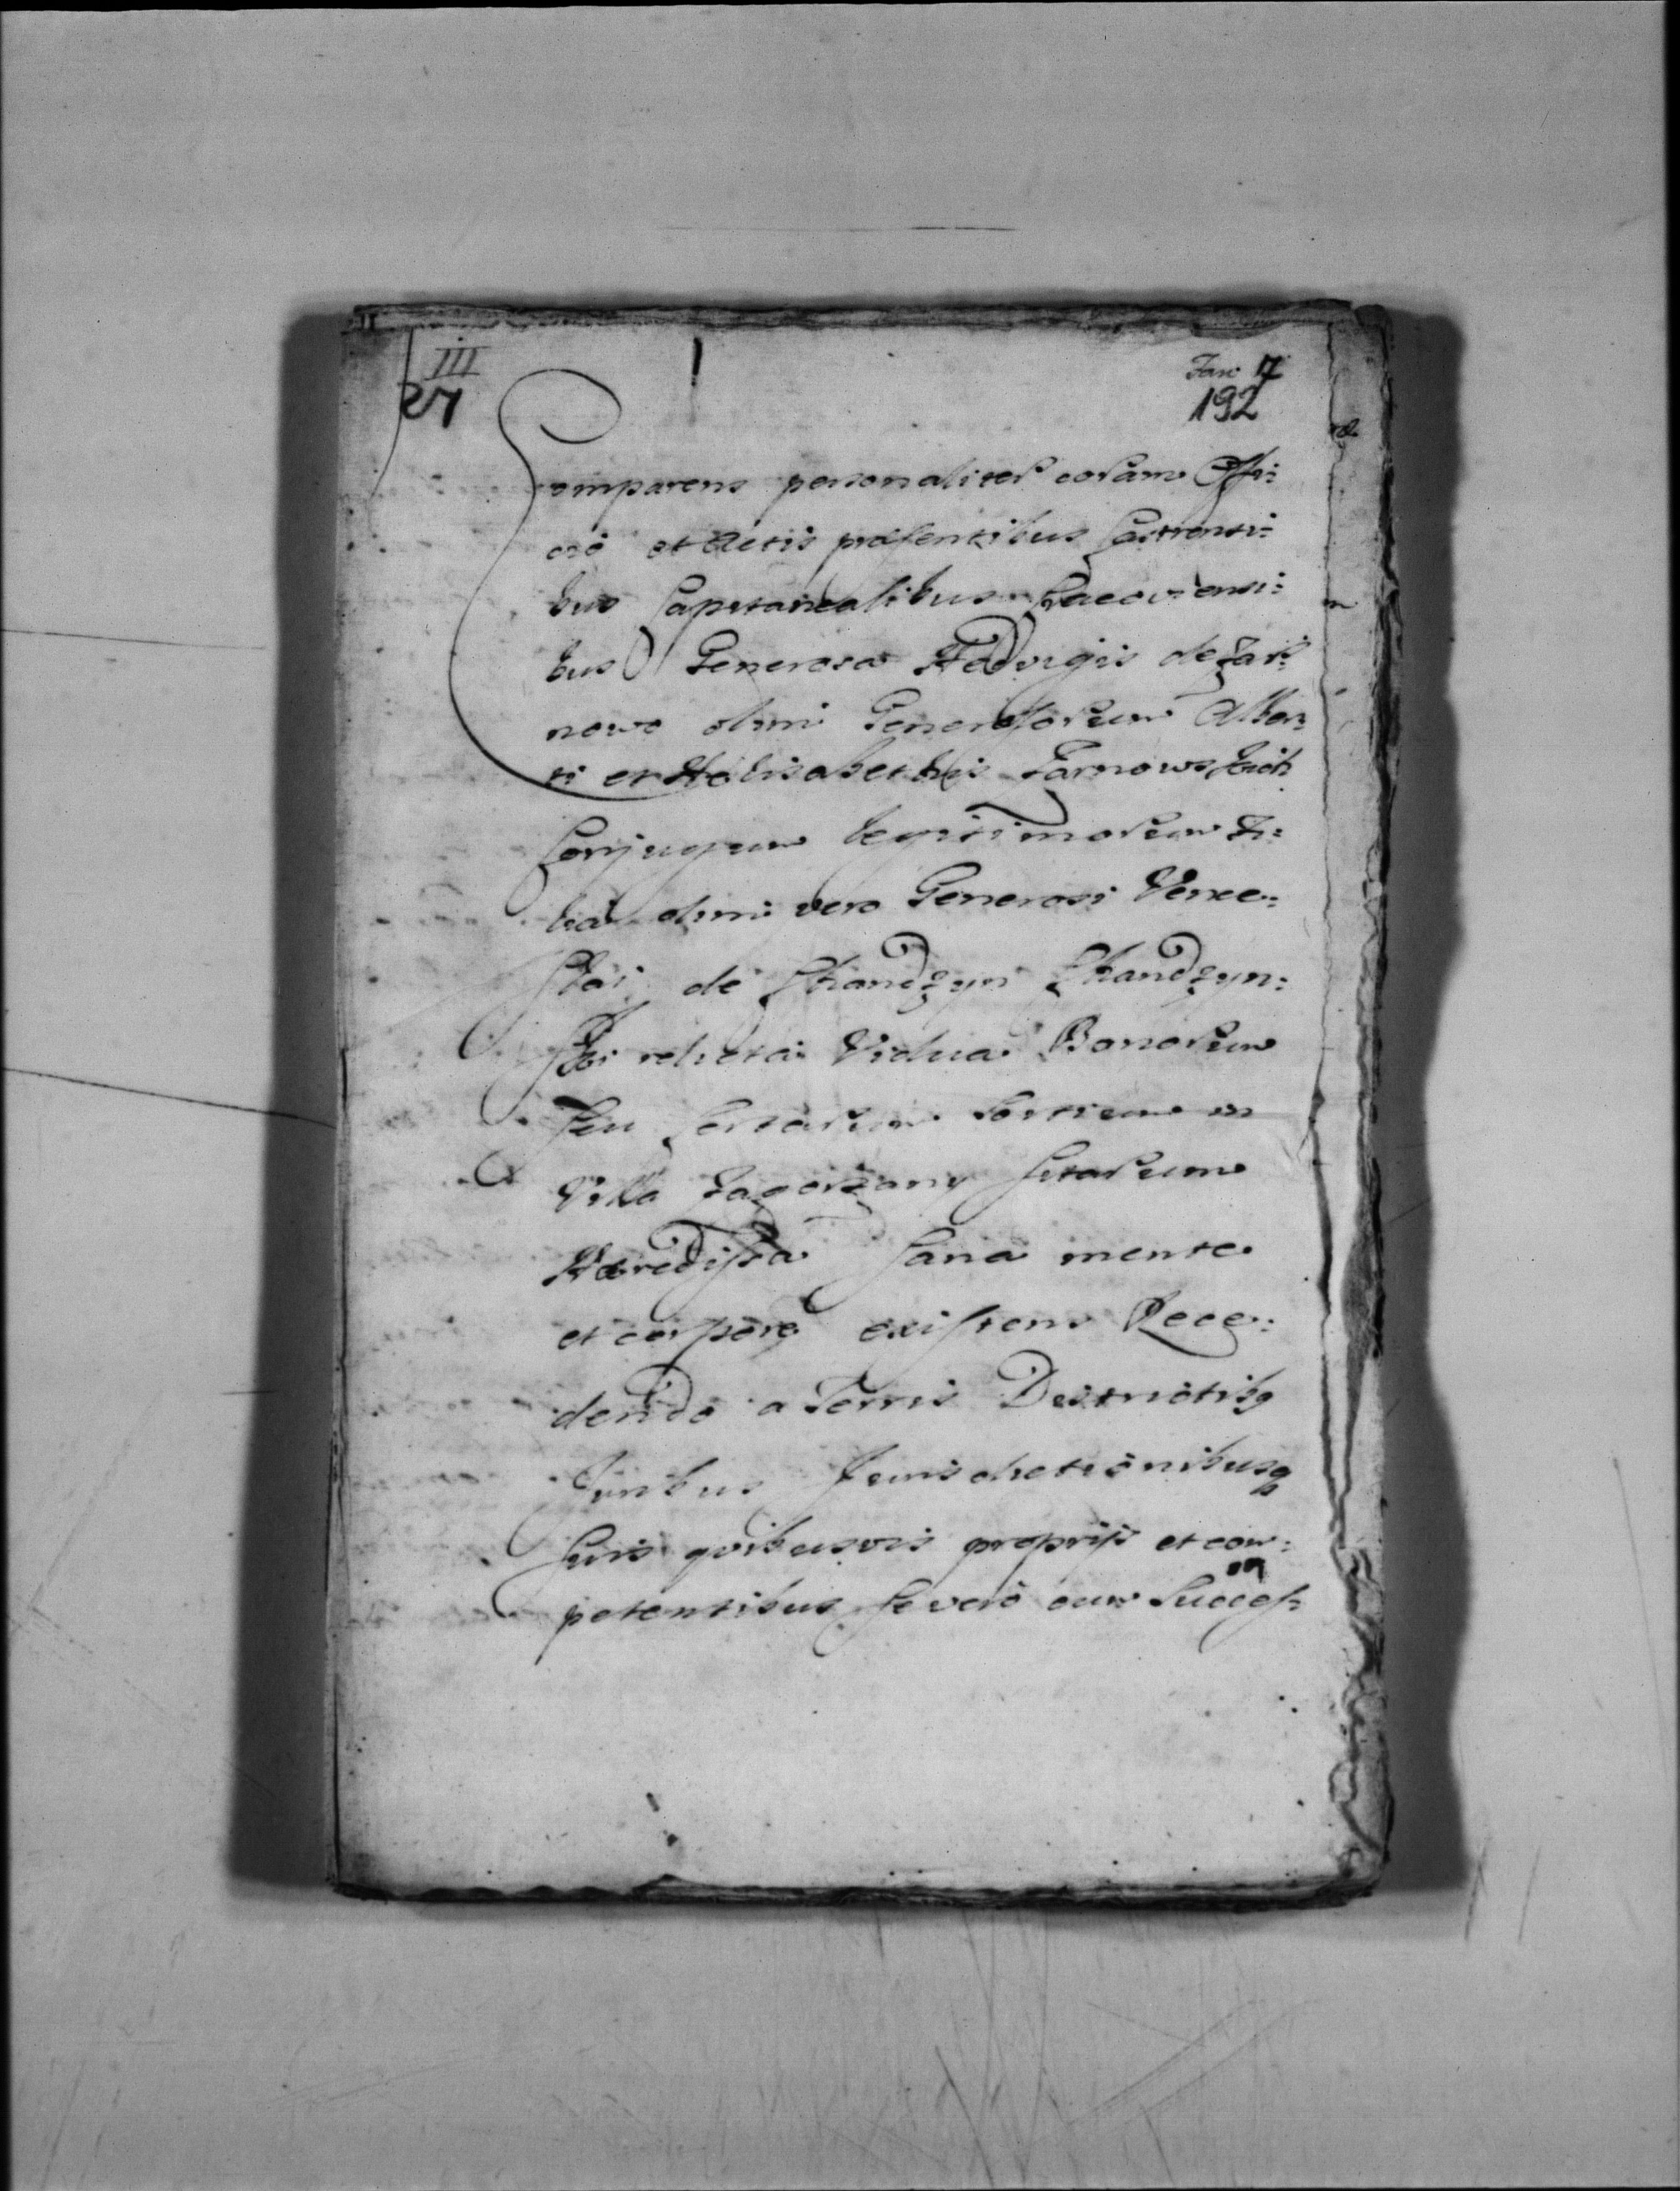 III
27
Jan: 17
192
Comparens personaliter coram Offi:
cio et Actis præsentibus Castrensi:
bus Capitanealibus Cracoviensi:
bus Generosa Hedvigis de Tar:
nowo olim Generosorum Alber:
ti et Helisabethis Tarnowskich
Conjugum legitimorum Fi:
lia olim vero Generosi Vence:
slai de Skandzyn Skandzyn:
ski relicta Vidua Bonorum
seu certarum Sortium in
Villa Zagorzany sitarum
Hæredissa sana mente
et corpore existens Rece:
dendo a Terris Districtibq
Juribus Jurisdictionibusq
suis quibusvis proprijs et com:
petentibus se vero cum Succes: